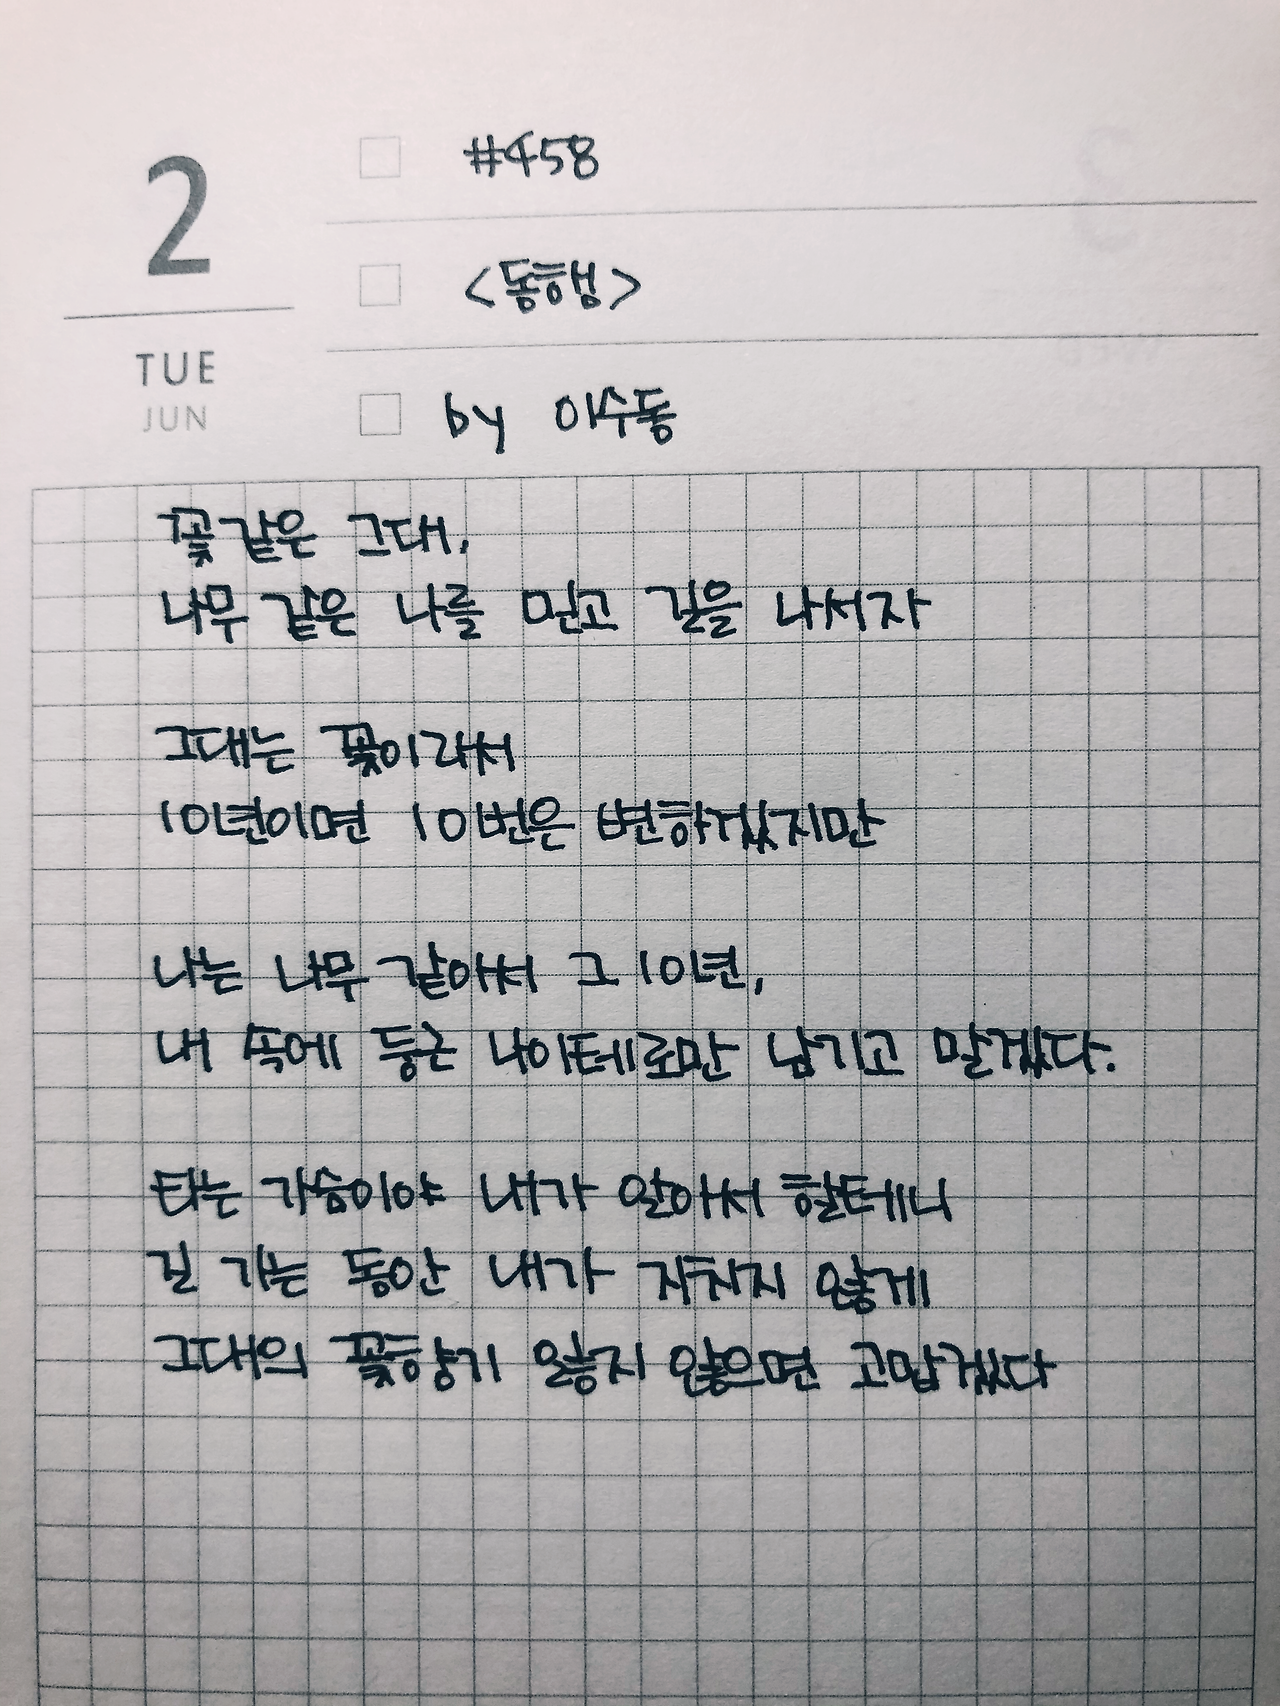 2
TUE
JUN
#458
<동행>
by 이수동
꽃 같은 그대,
나무 같은 나를 믿고 길을 나서자
그대는 꽃이라서
10년이면 10번은 변하겠지만
나는 나무 같아서 그 10년,
내 속에 둥근 나이테로만 남기고 말겠다.
타는 가슴이야 내가 알아서 할테니
길 가는 동안 내가 지치지 않게
그대의 꽃향기 잃지 않으면 고맙겠다